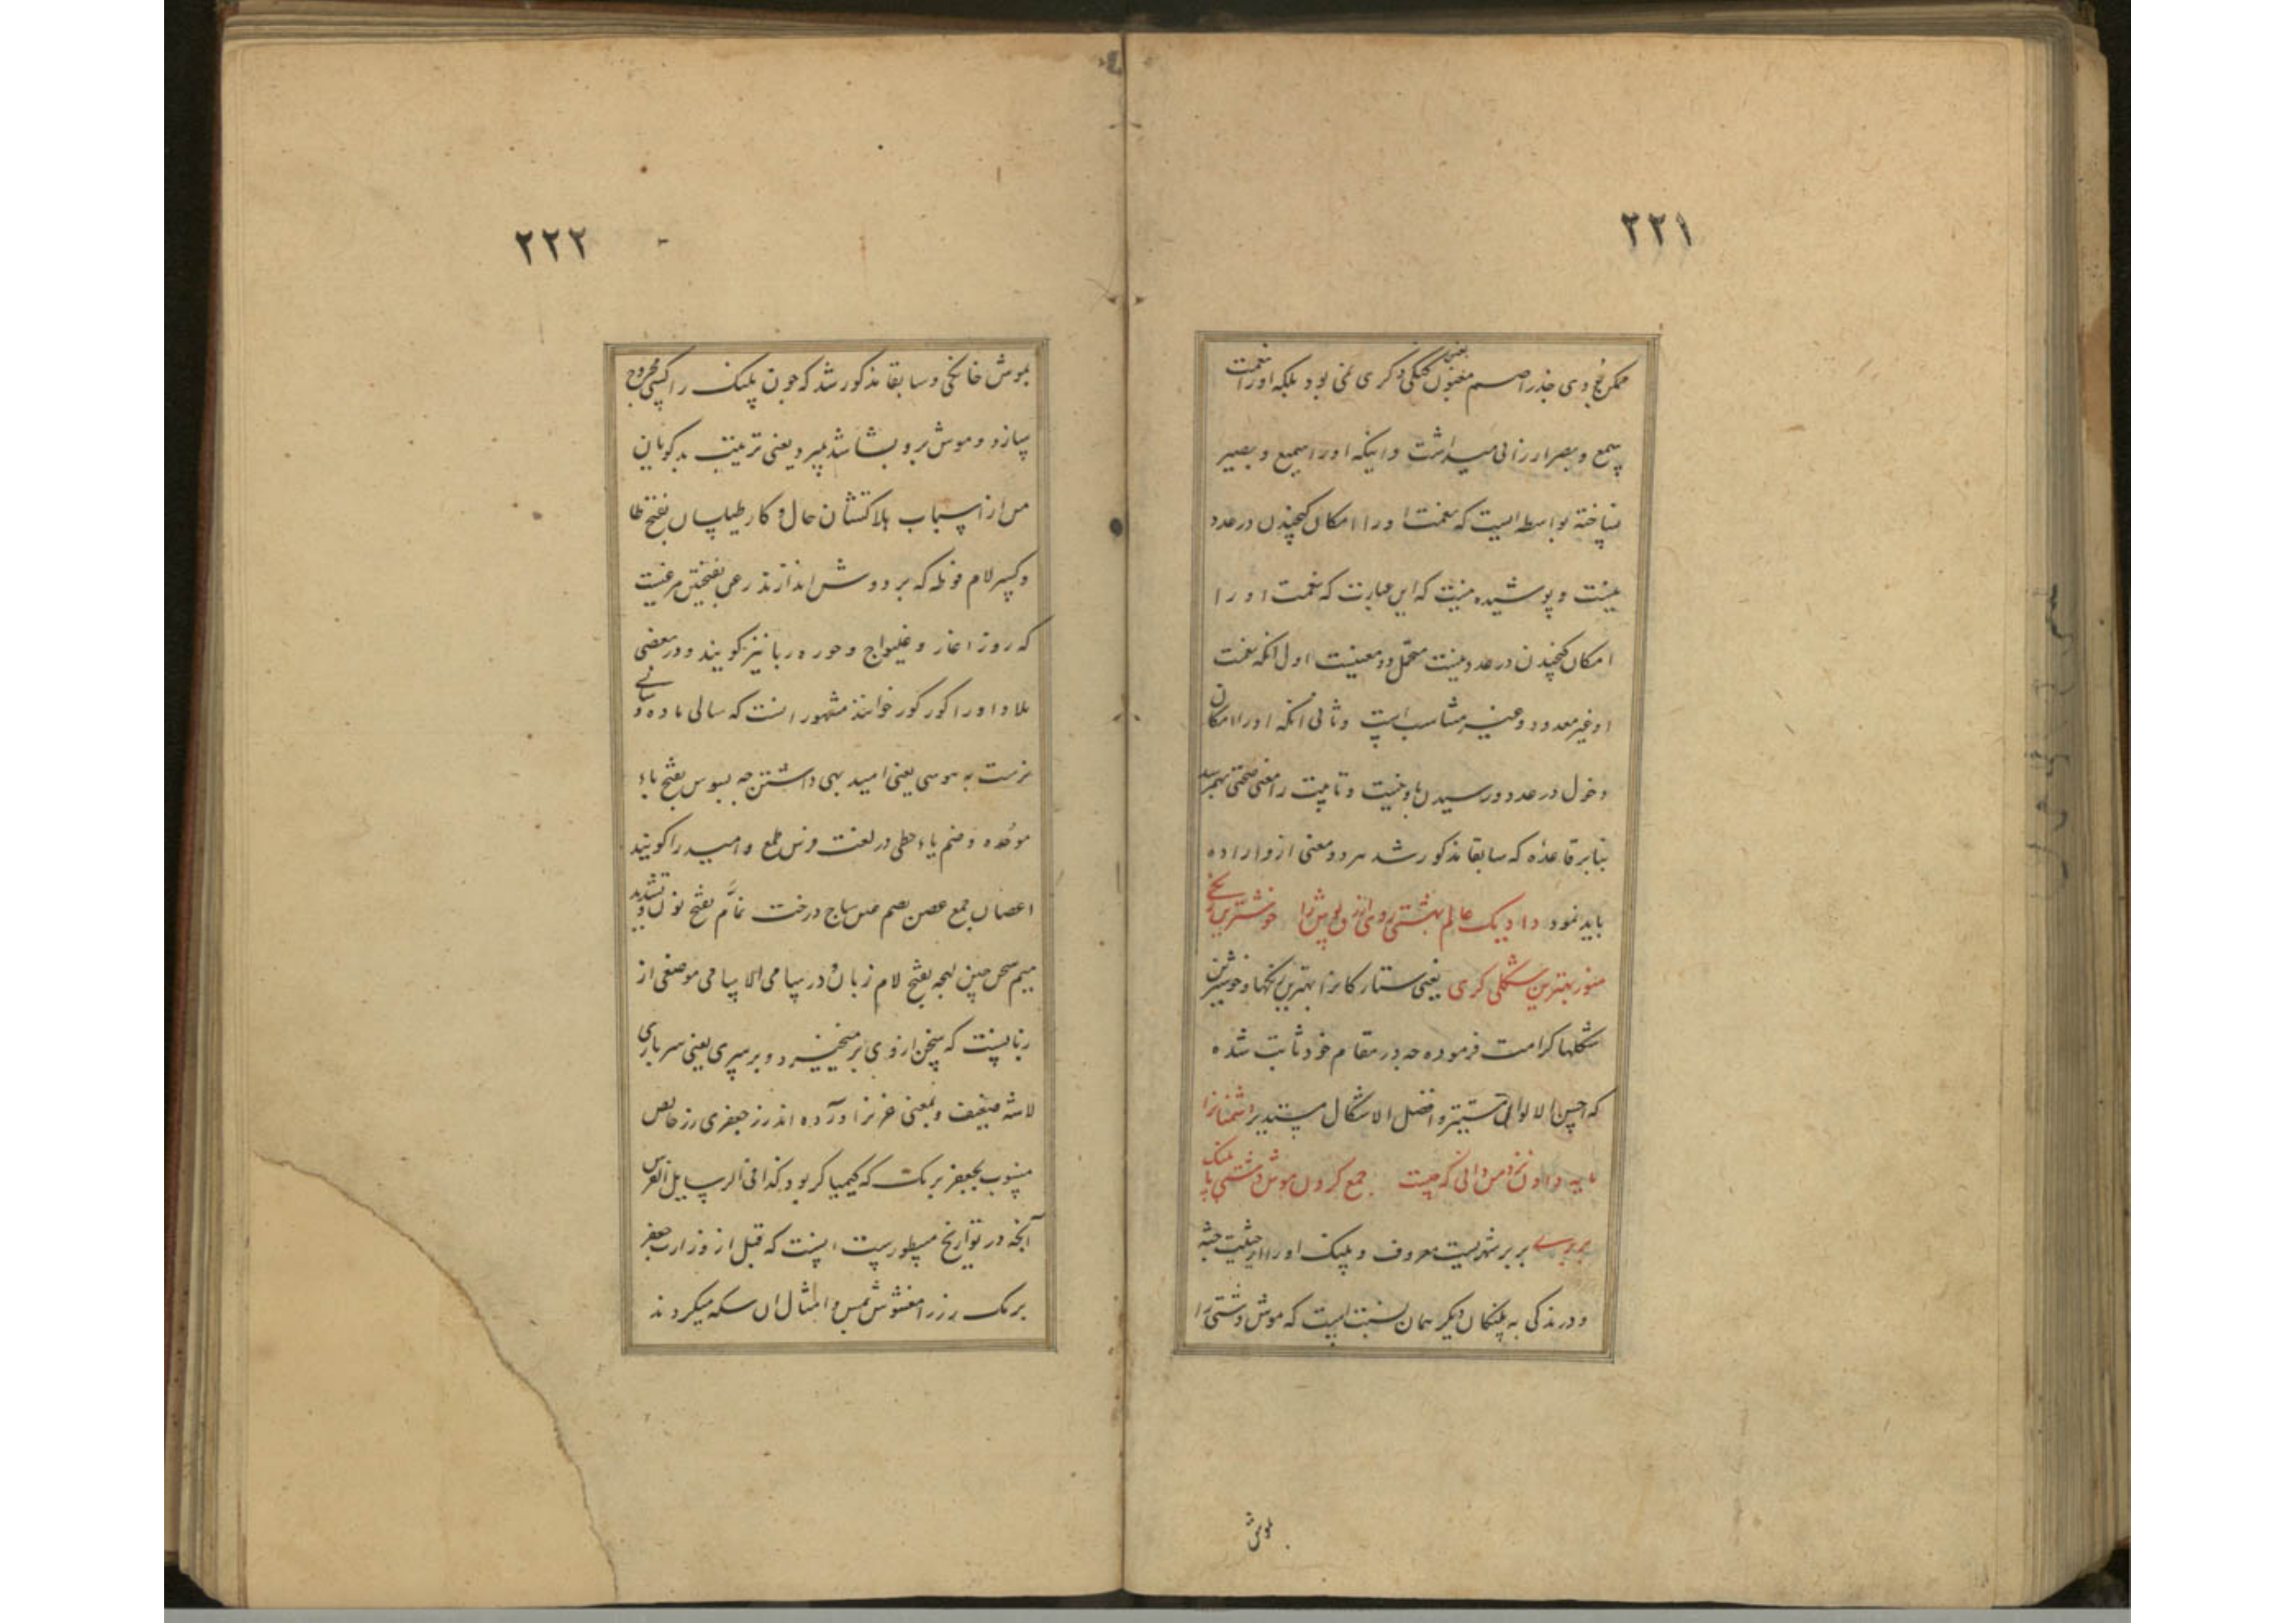 ۲۲۱
ممکن بودی جذر اصم مفتون گنگی و کری نمی بود بلکه او را نعمت
یعنی
سمع و بصر ارزانی میداشت و اینکه او را سمیع و بصیر
نساخته بواسطه ایست که نعمت او را امکان گنجیدن در عدد
نیست و پوشیده نیست که این عبارت که نعمت او را
امکان گنجیدن در عدد نیست محتمل دو معنیست اول انکه نعمت
او غیر معدود و غیر متناسب است و ثانی انکه او را امکان
دخول در عدد و رسیدن باو نیست و تا بیت را معنی صحتی بهم رسد
بنابر قاعده که سابقا مذکور شد هر دو معنی ازو اراده
باید نمود داد یک عالم بهشتی روی ازرق پوش را خوشترین رنگی
منور بهترین شکلی کری یعنی ستارکانرا بهترین رنگها و خوشترین
شکلها کرامت فرموده چه در مقام خود ثابت شده
که احسن الالوان المستنیر و افضل الاشکال مستدیر دشمنانرا
مایه دادن نزد من دانی که چیست جمع کردن موش دشتی با پلنک
بربری بربر شهریست معروف و پلنک او را از حیثیت جثه
و درندکی به پلنکان دیکر همان نسبت است که موش دشتی را
موش
۲۲۲
بموش خانکی و سابقا مذکور شد که چون پلنک را کسی مجروح
سازد و موش برو بشاشد بمیرد یعنی تربیت بدکویان
من از اسباب هلاکتشان حال و کار طیلسان بفتح طا
و کسر لام فوطه که بر دوش اندازند زغن بفتحتین مرغیست
که روز اغاز و غلیواج و خوره ربا نیز کویند و در بعضی
بلاد او را کور کور خوانند مشهور انست که سالی ماده و سالی
نرست به بیوسی یعنی امید بهی داشتن چه بیوس بفتح باء
موحده و ضم یاء حطی در لغت فرس طمع و امید را کویند
اغصان جمع غصن بضم غین شاخ درخت نمّام بفتح نون و تشدید
میم سخن چین لهجه بفتح لام زبان و در سامی الاسامی موضعی از
زبانست که سخن ازوی برمیخیزد و برسری یعنی سرباری
لاشه ضعیف و بمعنی خر نر اورده اند زر جعفری زر خالص
منسوب بجعفر برمک که کیمیاکر بود کذا فی الرسایل الفرس
آنچه در تواریخ مسطورست اینست که قبل از وزارت جعفر
برمک بزر مغشوش بمس و امثال ان سکه میکردند